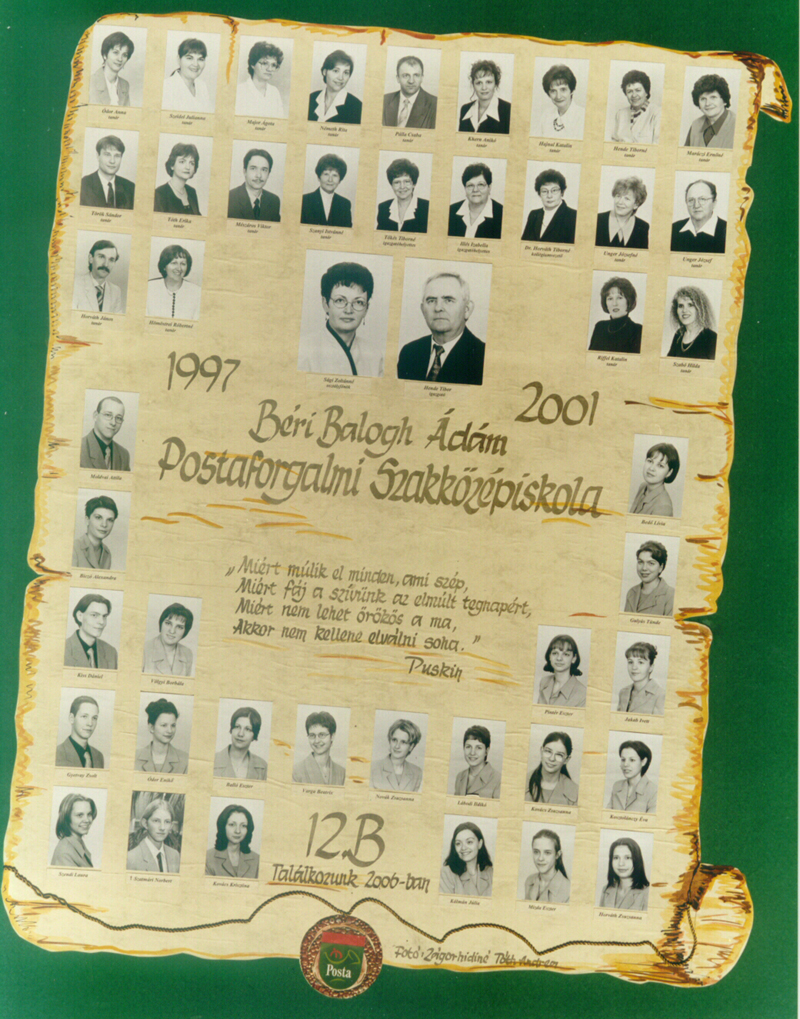 Ódor Anna
tanár
Székké Julianna
tanár
Major Ágota
tanár
Németh Rita
tanár
Pálla Csaba
tanár
Kheira Anikó
tanár
Hajnal Katalin
tanár
Bende Tiborné
tanár
Maráczi Ernőné
tanár
Török Sándor
tanár
Tóth Erika
tanár
Mészáros Viktor
tanár
Szanyi Istvánné
tanár
Tökés Tiborné
igazgatóhelyettes
Alés Izabella
igazgatóhelyettes
Dr. Horváth Tiborné
Unger Józsefné
tanár
Unger József
tanár
Horváth János
tanár
Róbertné
tanár
Ságl Zoltánné
osztályfőnök
Bende Tibor
igazgató
Riffel Katalin
tanár
Szabó Hilda
tanár
1997
2001
Béri Balogh Ádám
Postaforgalmi Szakközépiskola
Attila
Bedő Lívia
Alexandra
Gulyás Tünde
„Miért múlik el minden, ami szép,
Miért fáj a szívünk az elmúlt tegnapért,
Miért nem lehet örökös a ma,
Akkor nem kellene elválni soha.”
Puskin
Kiss Dániel
Völgyi Borbála
Pintér Eszter
Jakab Ivett
Gyarray Zsolt
Ódor Enikő
Balló Eszter
Varga Beatrix
Novák Zsuzsanna
Lábodi Ildikó
Kovács Zsuzsanna
Kesztölánczy Éva
Gyendi Laura
T. Szatmári Norbert
Kovács Krisztina
12.B
Találkozunk 2006-ban
Kálmán Júlia
Mizda Eszter
Horváth Zsuzsanna
Posta
Fotó: Zrigorhidiné Tóth Andrea